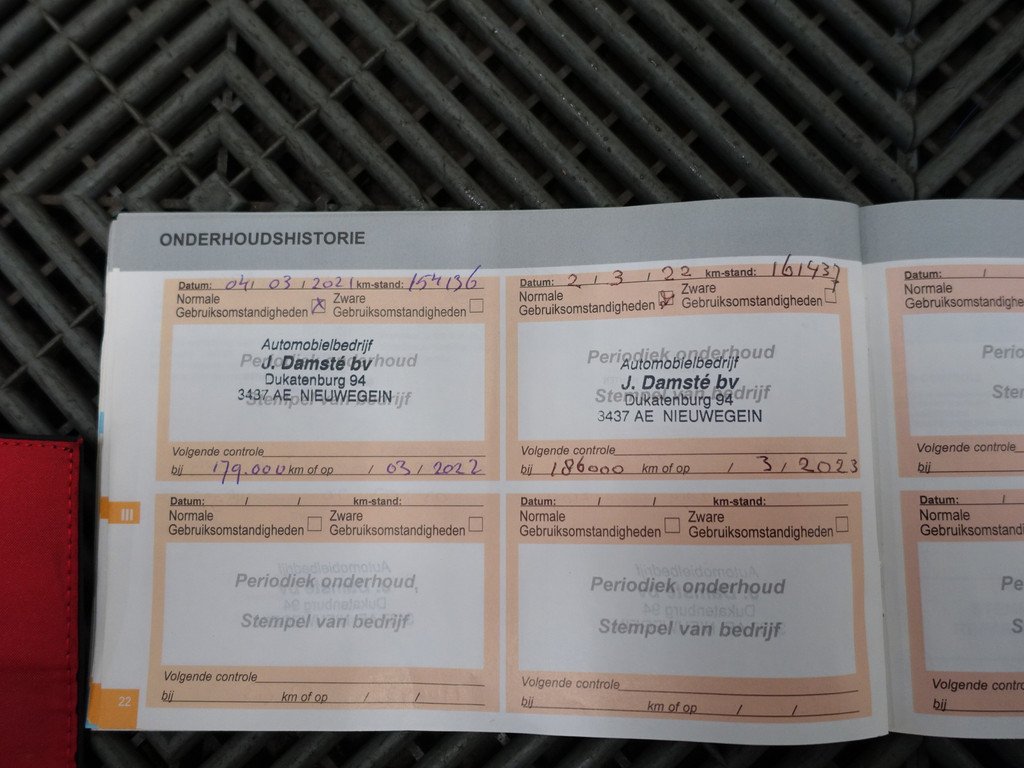 ONDERHOUDSHISTORIE
Datum: 04 / 03 / 2021 km-stand: 154136
Normale
Gebruiksomstandigheden
Zware
Gebruiksomstandigheden
Periodiek onderhoud
Stempel van bedrijf
Automobielbedrijf
J. Damsté bv
Dukatenburg 94
3437 AE NIEUWEGEIN
Volgende controle
bij 179.000 km of op / 03 / 2022
Datum: 2 / 3 / 22 km-stand: 161437
Normale
Gebruiksomstandigheden
Zware
Gebruiksomstandigheden
Periodiek onderhoud
Stempel van bedrijf
Automobielbedrijf
J. Damsté bv
Dukatenburg 94
3437 AE NIEUWEGEIN
Volgende controle
bij 186000 km of op / 3 / 2023
Datum: / / km-stand:
Normale
Gebruiksomstandigheden
Zware
Gebruiksomstandigheden
Periodiek onderhoud
Stempel van bedrijf
Volgende controle
bij km of op / /
Datum: / / km-stand:
Normale
Gebruiksomstandigheden
Zware
Gebruiksomstandigheden
Periodiek onderhoud
Stempel van bedrijf
Volgende controle
bij km of op / /
III
22
Datum: /
Normale
Volgende controle
bij
Datum: /
Normale
Volgende controle
bij